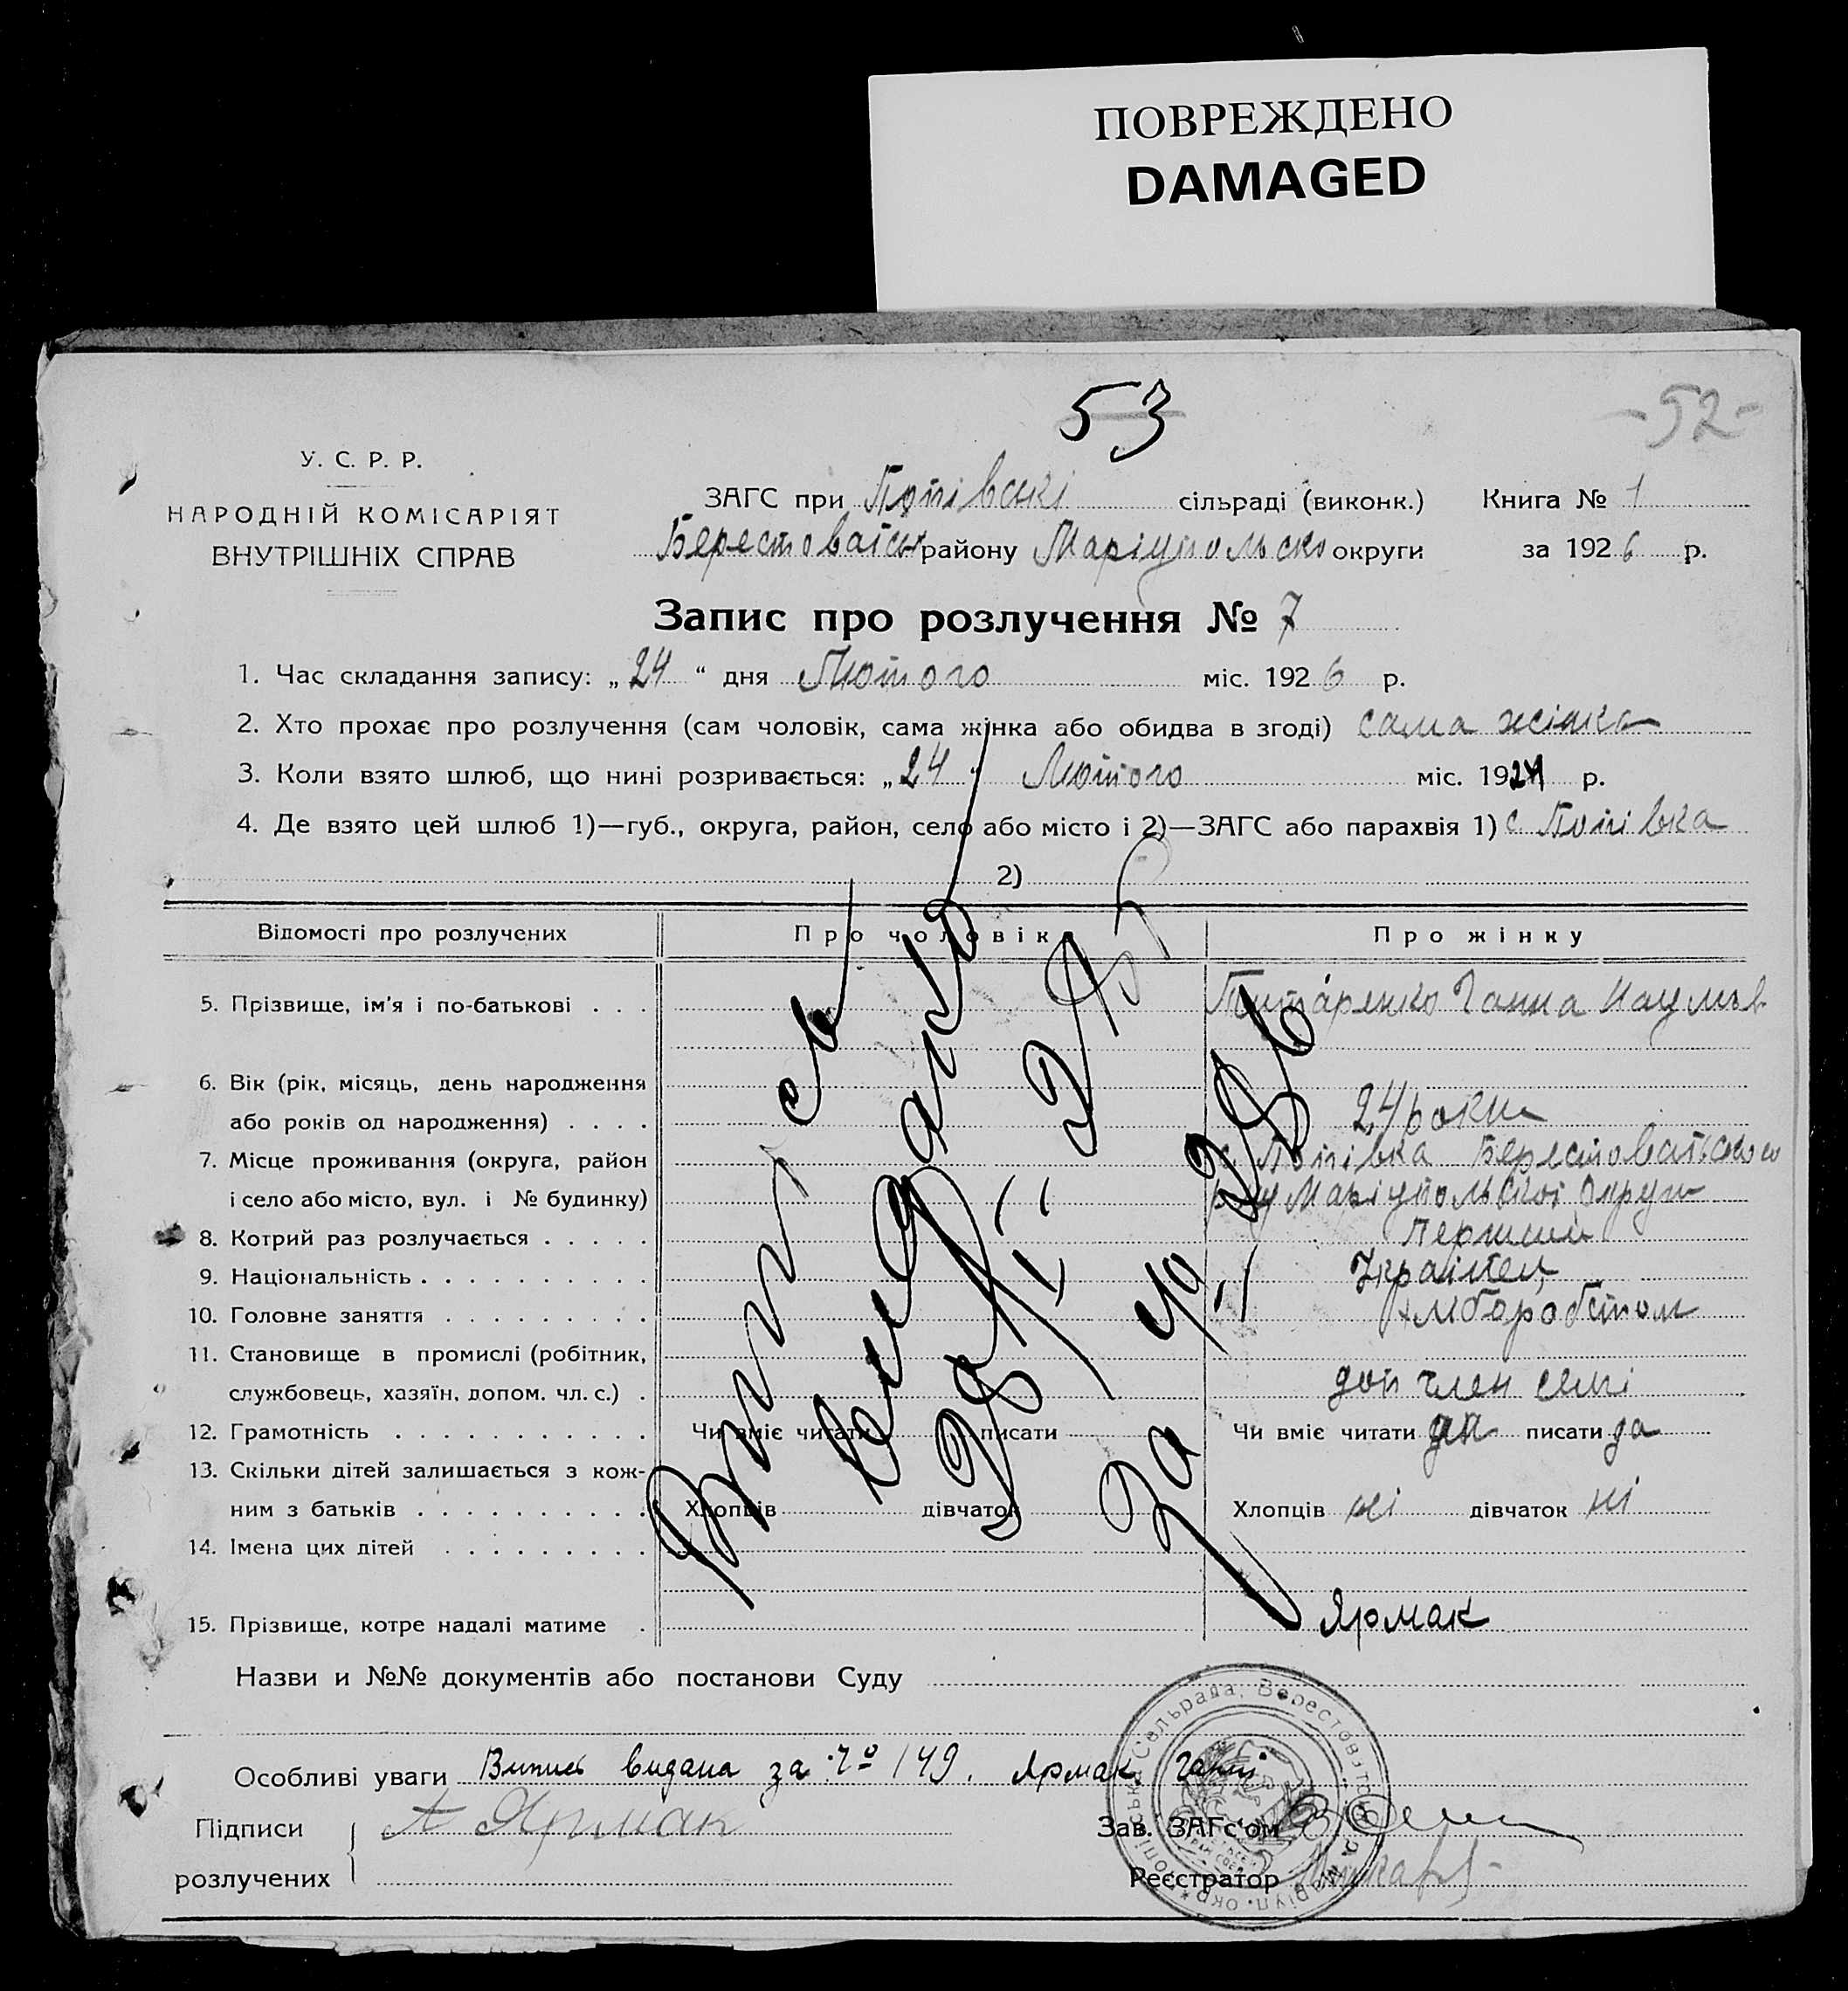 ПОВРЕЖДЕНО
DAMAGED
53
-52-
У. С. Р. Р.
НАРОДНІЙ КОМІСАРІЯТ
ВНУТРІШНІХ СПРАВ
ЗАГС при Попівські сільраді (виконк.) Книга № 1
Берестоватськ району Маріупольсько округи за 1926 р.
Запис про розлучення № 7
1. Час складання запису: „24“ дня Лютого міс. 1926 р.
2. Хто прохає про розлучення (сам чоловік, сама жінка або обидва в згоді) сама жінка
3. Коли взято шлюб, що нині розривається: „24“ Лютого міс. 1924 р.
4. Де взято цей шлюб 1)—губ., округа, район, село або місто і 2)—ЗАГС або парахвія 1) с. Попівка
2)
Відомості про розлучених Про чоловіка Про жінку
5. Прізвище, ім'я і по-батькові . . . Ганна Наумов
6. Вік (рік, місяць, день народження
або років од народження) . . . . 24 роки
7. Місце проживання (округа, район с. Попівка Берестоватського
і село або місто, вул. і № будинку) р-ну Маріупольскої округи
8. Котрий раз розлучається . . . . . Перший
9. Національність . . . . . . . . . . Українец
10. Головне заняття . . . . . . . . . хлібаробством
11. Становище в промислі (робітник,
службовець, хазяїн, допом. чл. с.) . доп член семі
12. Грамотність . . . . . . . . . . . Чи вміє читати писати Чи вміє читати да писати да
13. Скільки дітей залишається з кож-
ним з батьків . . . . . . . . . . Хлопців дівчаток Хлопців ні дівчаток ні
14. Імена цих дітей . . . . . . . . .
15. Прізвище, котре надалі матиме . Ярмак
Випись
видано
28/II
за № 286
Назви и №№ документів або постанови Суду
Особливі уваги Випись видана за № 149. Ярмак Ганні
Підписи А Ярмак Зав. ЗАГс'ом
розлучених Реєстратор